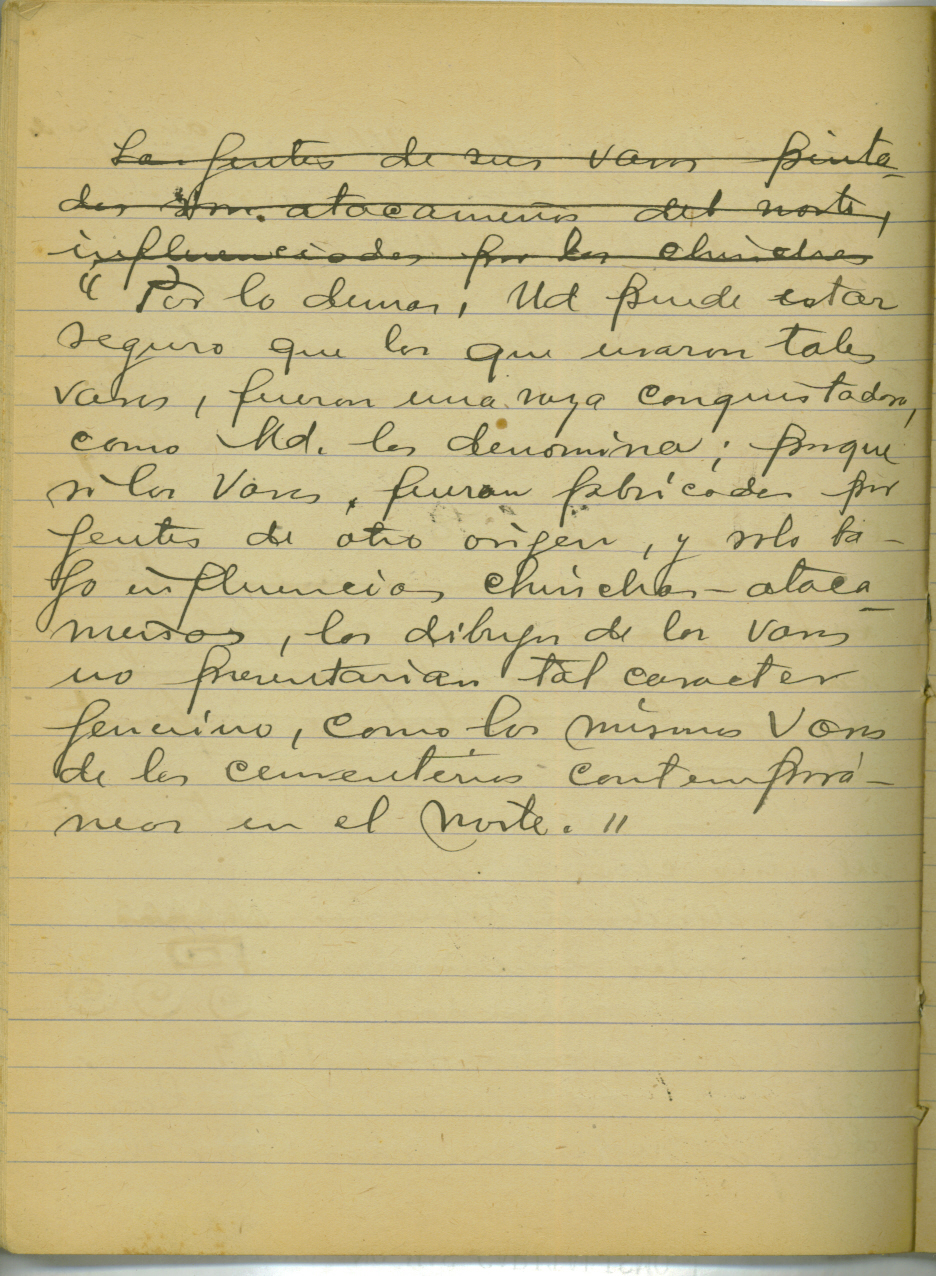 Las gentes de sus vasos pinta-
dos son atacameños del norte,
influenciados por los chinchas
“ Por lo demas, Ud puede estar
seguro que los que usaron tales
vasos, fueron una raza conquistadora,
como Ud. los denomina; porque
si los Vasos, fueran fabricados por
gentes de otro origen, y solo ba-
jo influencias chinchas-ataca-
meñas, los dibujos de los vasos
no presentarian tal caracter
genuino, como los mismos Vasos
de los cementerios contemporá-
neos en el Norte. "